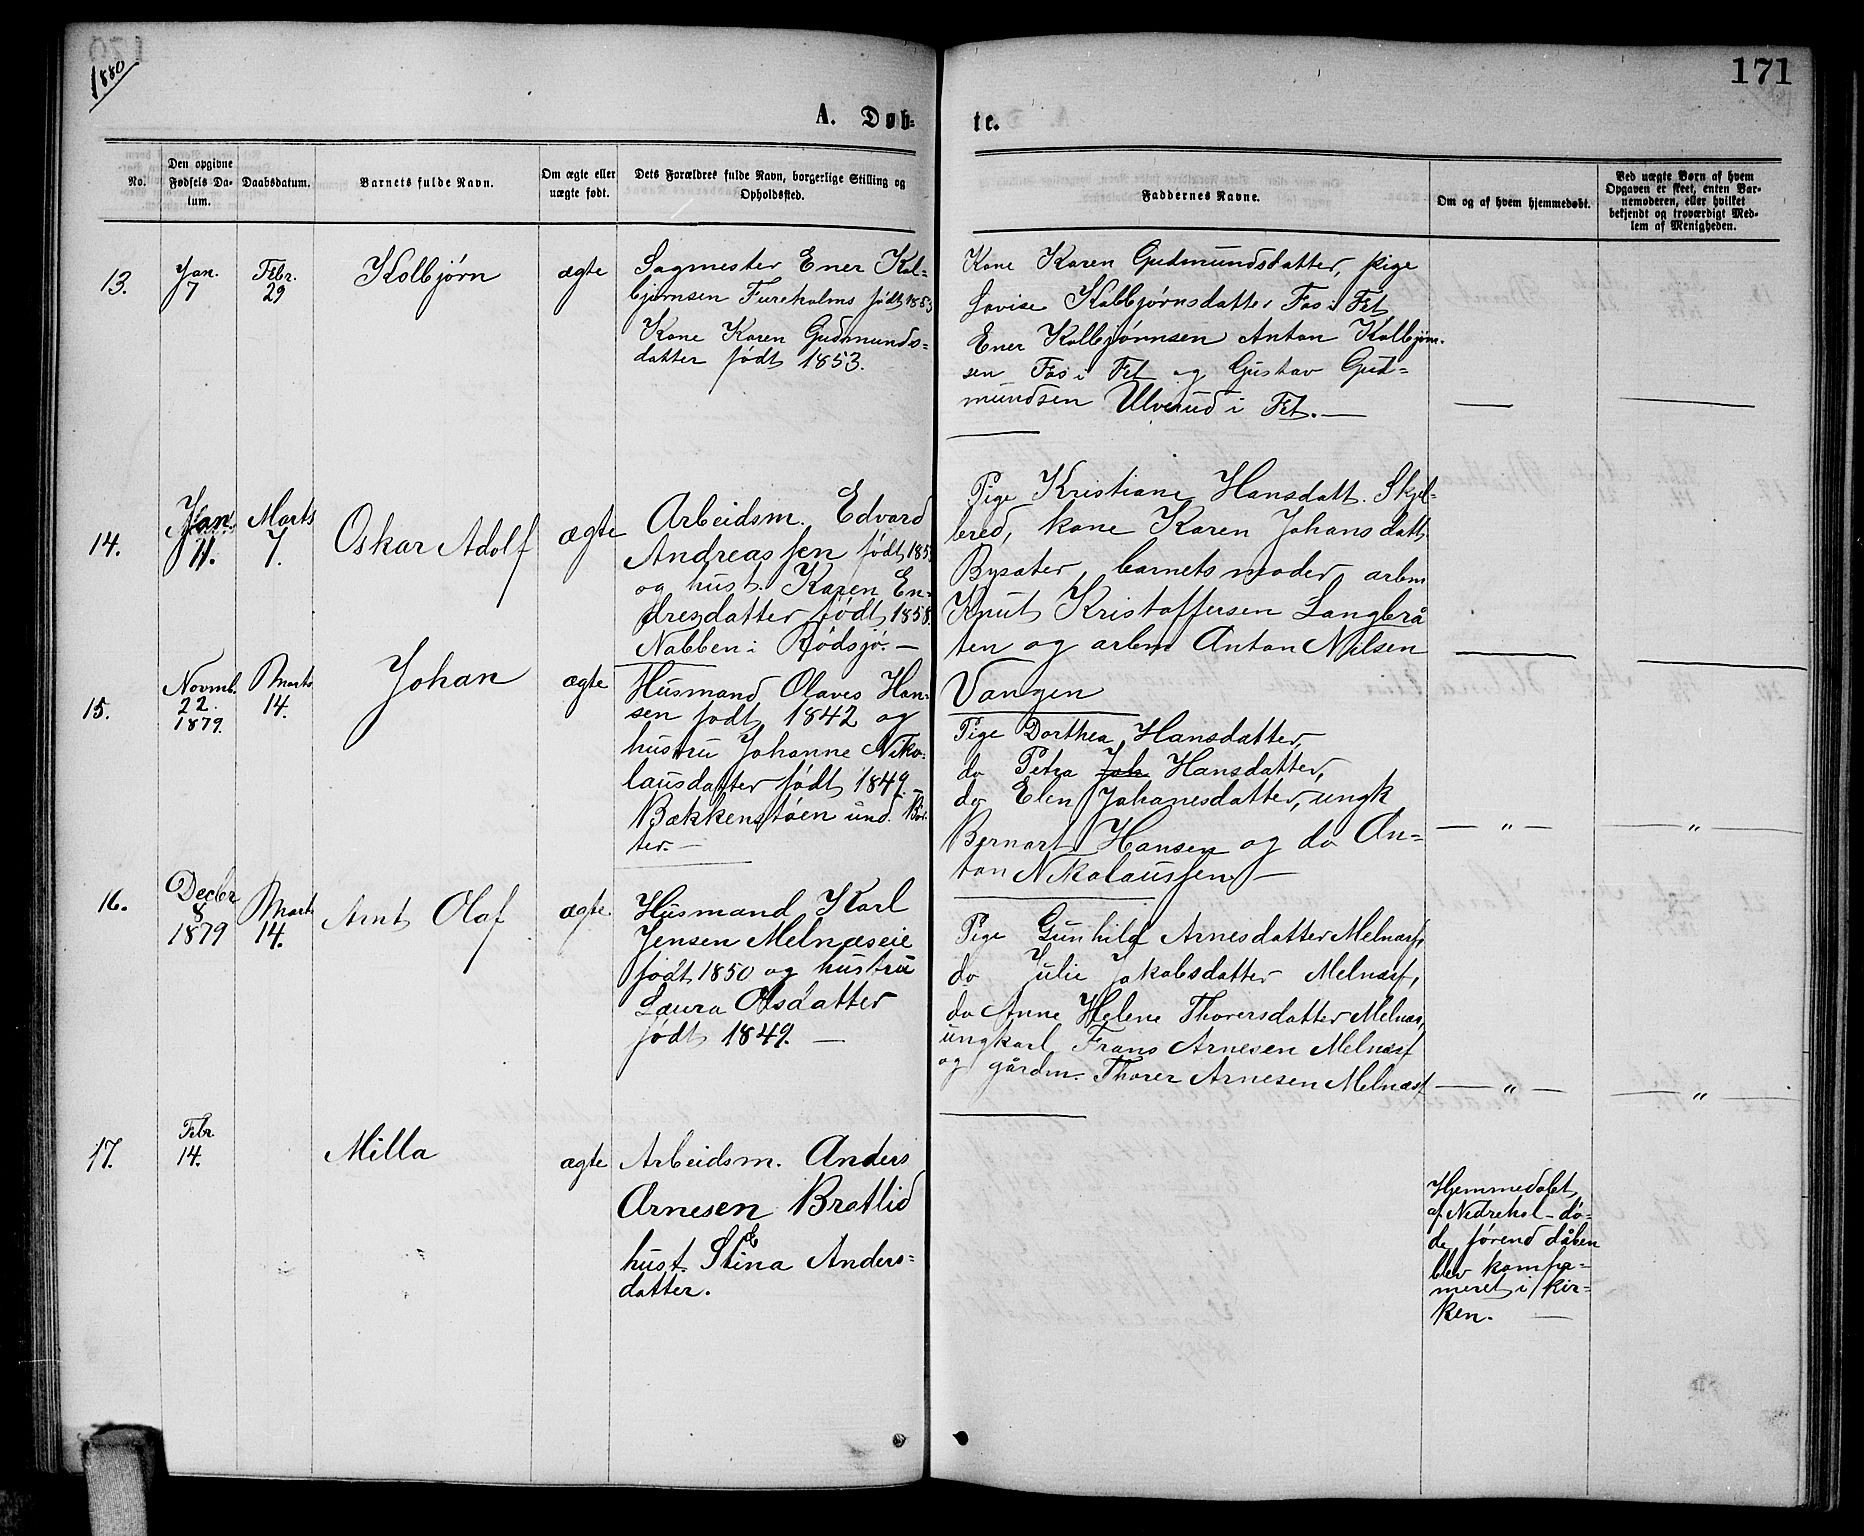 1880
171
A. Døb-
te.
No.
Den opgivne Fødsels Da-
tum.
Daabsdatum.
Barnets fulde Navn.
Om ægte eller
uægte født.
Dets Forældres fulde Navn, borgerlige Stilling og
Opholdssted.
Faddernes Navne.
Om og af hvem hjemmedøbt.
Ved uægte Børn af hvem
Opgaven er skeet, enten Bar-
nemoderen, eller hvilket
bekjendt og troværdigt Med-
lem af Menigheden.
13.
Jan.
7
Febr.
29
Kolbjørn
ægte
Sagmester Ener Kol-
bjørnsen Fureholms født 1853
Kone Karen Gudmunds-
datter født 1853.
Kone Karen Gudmundsdatter, pige
Lovise Kolbjørnsdatter Fos i Fet
Ener Kolbjørnsen Anton Kolbjørn-
sen Fos i Fet og Gustav Gud-
mundsen Ulverud i Fet.—
14.
Jan.
11.
Marts
7.
Oskar Adolf
ægte
Arbeidsm. Edvard
Andreassen født
og hust. Karen En-
dresdatter født 1858.
Nabben i Rødsjø.—
Pige Kristiane Hansdatt. Skjel-
bred, kone Karen Johansdatt.
Bysæter, barnets moder, arbm
Knut Kristoffersen Langbrå-
ten og arbm Anton Nilsen
Vangen
15.
Novmb.
22.
1879.
Marts
14.
Johan
ægte
Husmand Olaves Han-
sen født 1842 og
hustru Johanne Niko-
lausdatter født 1849.—
Bækkenstøen und. Bor-
ter.—
Pige Dorthea Hansdatter,
do Petra Joh Hansdatter,
do Elen Johanesdatter, ungk
Bernart Hansen og do An-
ton Nikolaussen—
— " —
— " —
16.
Decbr
8
1879
Marts
14.
Arnt Olaf
ægte
Husmand Karl
Jensen Melnæseie
født 1850 og hustru
Laura Olsdatter
født 1849.—
Pige Gunhild Arnesdatter Melnæs,
do Julie Jakobsdatter Melnæs,
do Anne Helene Thorersdatter Melnæs,
ungkarl Frans Arnesen Melnæs
og gårdm. Thorer Arnesen Melnæs
— " —
— " —
17.
Febr.
14.
Milla
ægte
Arbeidsm. Anders
Arnesen Bratlid
hust. Stina Anders-
datter.
Hjemmedøbt
af Nedrehol - dø-
de førend dåben
blev komfir-
meret i kir-
ken.—